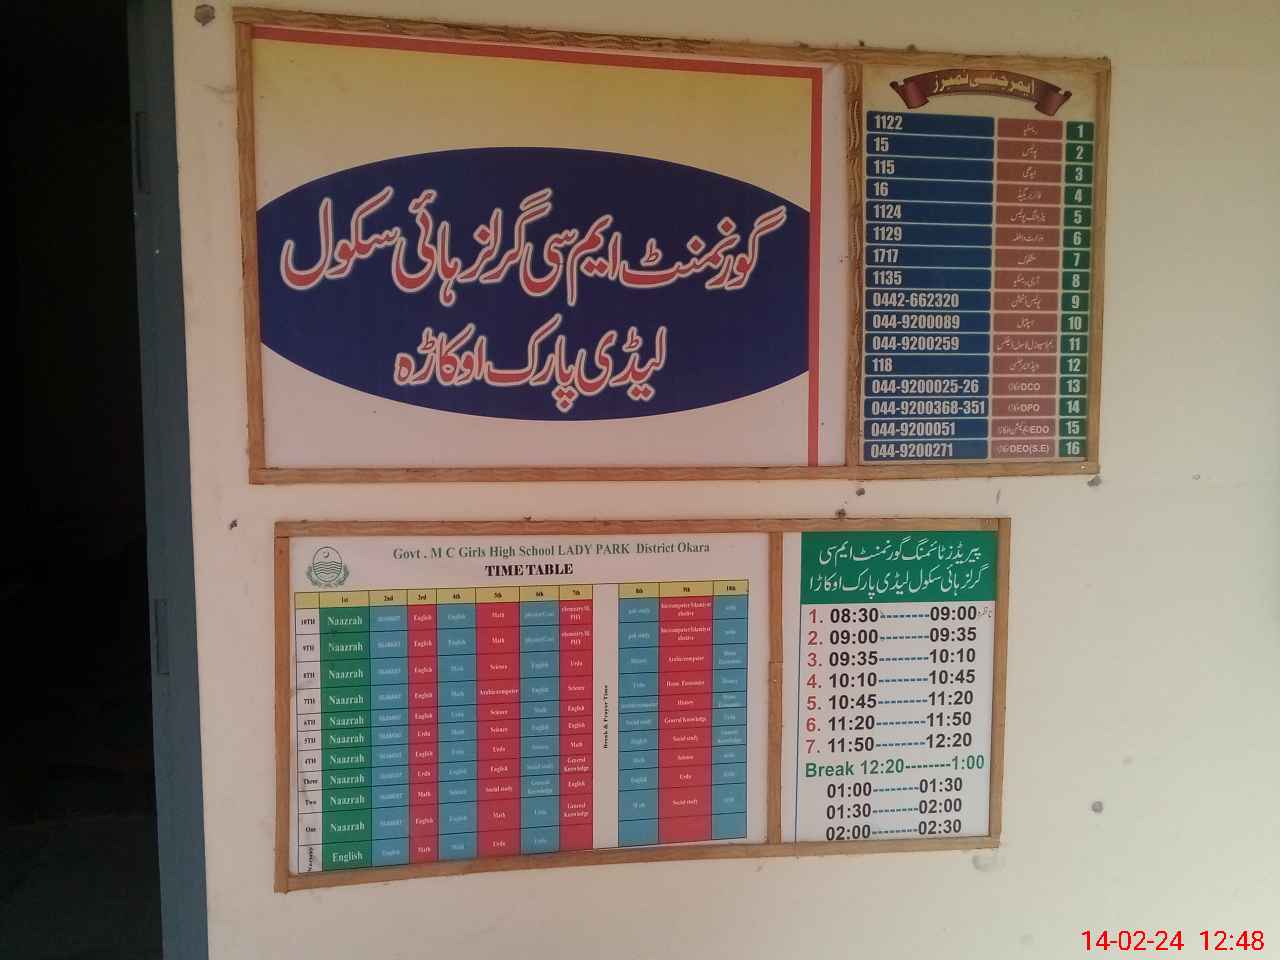 گورنمنٹ ایم سی گرلز ہائی سکول
لیڈی پارک اوکاڑہ
ایمرجنسی نمبرز
1122 ریسکیو 1
15 پولیس 2
115 ایدھی 3
16 فائر بریگیڈ 4
1124 پٹرولنگ پولیس 5
1129 6
1717 7
1135 8
0442-662320 9
044-9200089 ہسپتال 10
044-9200259 11
118 12
044-9200025-26 DCO اوکاڑا 13
044-9200368-351 DPO اوکاڑا 14
044-9200051 EDO ایجوکیشن اوکاڑا 15
044-9200271 DEO(S.E) اوکاڑا 16
Govt . M C Girls High School LADY PARK District Okara
TIME TABLE
1st 2nd 3rd 4th 5th 6th 7th 8th 9th 10th
10TH Naazrah English English Math pak study
9TH Naazrah English English Math pak study
8TH Naazrah English Math Science English Urdu History Arabic/computer Home Economics
7TH Naazrah English Math Arabic/computer English Science Urdu Home Economics History
6TH Naazrah English Urdu Science Math English Arabic/computer History Home Economics
5TH Naazrah Urdu Math Science English English Social study General Knowledge Urdu
4TH Naazrah English Urdu Urdu Science Math English Social study General Knowledge
Three Naazrah Urdu English English Social study General Knowledge Math Science
Two Naazrah Math Science Social study General Knowledge English English Urdu
One Naazrah English English Math Urdu General Knowledge Math Social study
Nursery English English Math Math Urdu Urdu
Break & Prayer Time
پیریڈز ٹائمنگ گورنمنٹ ایم سی
گرلز ہائی سکول لیڈی پارک اوکاڑا
1. 08:30--------09:00 ناظرہ
2. 09:00--------09:35
3. 09:35--------10:10
4. 10:10--------10:45
5. 10:45--------11:20
6. 11:20--------11:50
7. 11:50--------12:20
Break 12:20--------1:00
01:00--------01:30
01:30--------02:00
02:00--------02:30
14-02-24 12:48